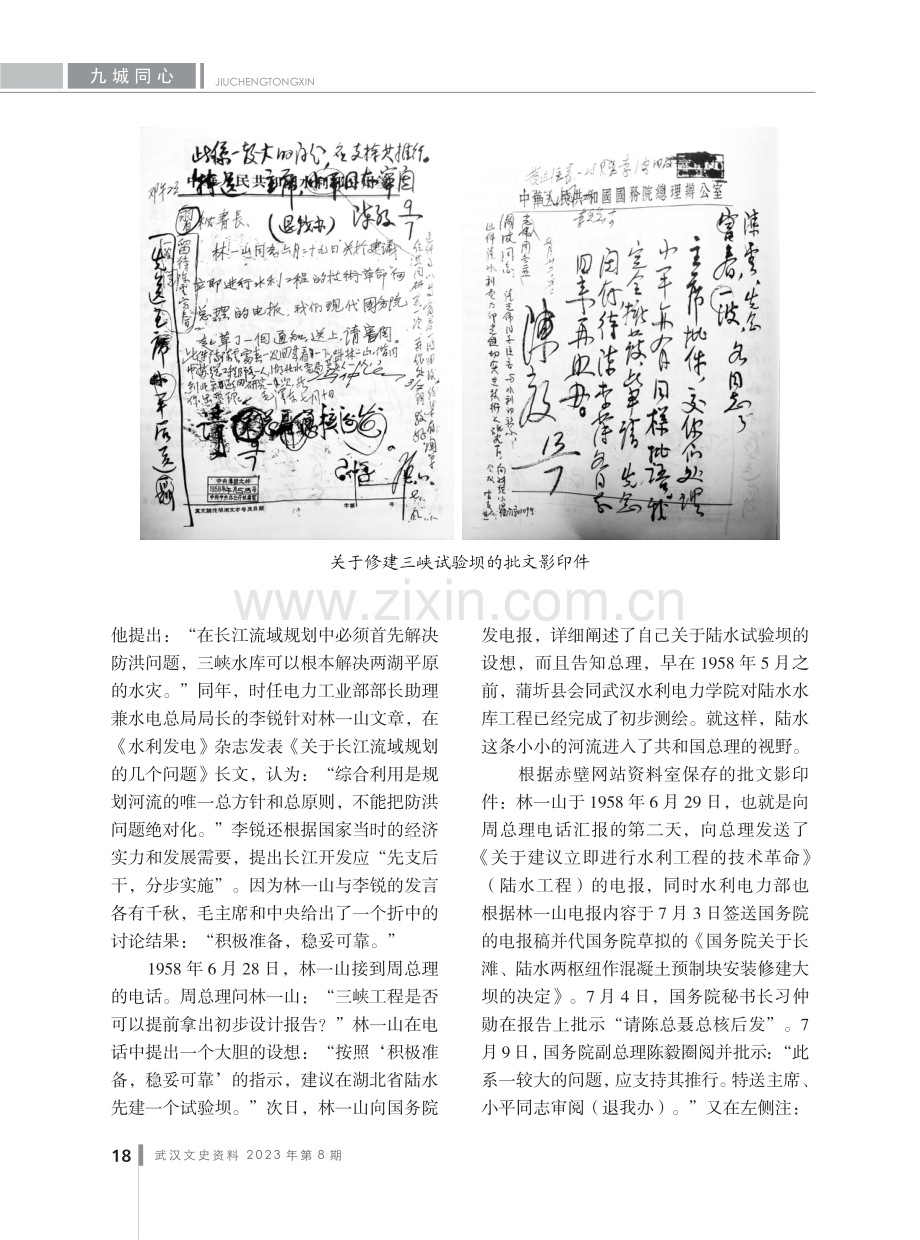 九城同心
JIUCHENGTONGXIN
此系一较大的问题，应支持其推行。
特送主席、小平同志审阅
（退我办）
陈毅 9/7
林一山同志六月二十九日关于建议
立即进行水利工程的技术革命向
总理的电报，我们现代国务院
草了一个通知，送上，请审阅。
先送主席小平后送
中華人民共和國國務院總理辦公室
陈云、先念、
富春、一波各同志
主席批件，交你们处理
陳毅 13/7
关于修建三峡试验坝的批文影印件
www.zixin.com.cn
他提出：“在长江流域规划中必须首先解决
防洪问题，三峡水库可以根本解决两湖平原
的水灾。”同年，时任电力工业部部长助理
兼水电总局局长的李锐针对林一山文章，在
《水利发电》杂志发表《关于长江流域规划
的几个问题》长文，认为：“综合利用是规
划河流的唯一总方针和总原则，不能把防洪
问题绝对化。”李锐还根据国家当时的经济
实力和发展需要，提出长江开发应“先支后
干，分步实施”。因为林一山与李锐的发言
各有千秋，毛主席和中央给出了一个折中的
讨论结果：“积极准备，稳妥可靠。”
1958 年 6 月 28 日，林一山接到周总理
的电话。周总理问林一山：“三峡工程是否
可以提前拿出初步设计报告？”林一山在电
话中提出一个大胆的设想：“按照‘积极准
备，稳妥可靠’的指示，建议在湖北省陆水
先建一个试验坝。”次日，林一山向国务院
发电报，详细阐述了自己关于陆水试验坝的
设想，而且告知总理，早在 1958 年 5 月之
前，蒲圻县会同武汉水利电力学院对陆水水
库工程已经完成了初步测绘。就这样，陆水
这条小小的河流进入了共和国总理的视野。
根据赤壁网站资料室保存的批文影印
件：林一山于 1958 年 6 月 29 日，也就是向
周总理电话汇报的第二天，向总理发送了
《关于建议立即进行水利工程的技术革命》
（陆水工程）的电报，同时水利电力部也
根据林一山电报内容于 7 月 3 日签送国务院
的电报稿并代国务院草拟的《国务院关于长
滩、陆水两枢纽作混凝土预制块安装修建大
坝的决定》。7 月 4 日，国务院秘书长习仲
勋在报告上批示“请陈总聂总核后发”。7
月 9 日，国务院副总理陈毅圈阅并批示：“此
系一较大的问题，应支持其推行。特送主席、
小平同志审阅（退我办）。”又在左侧注：
18 武汉文史资料 2023 年第 8 期